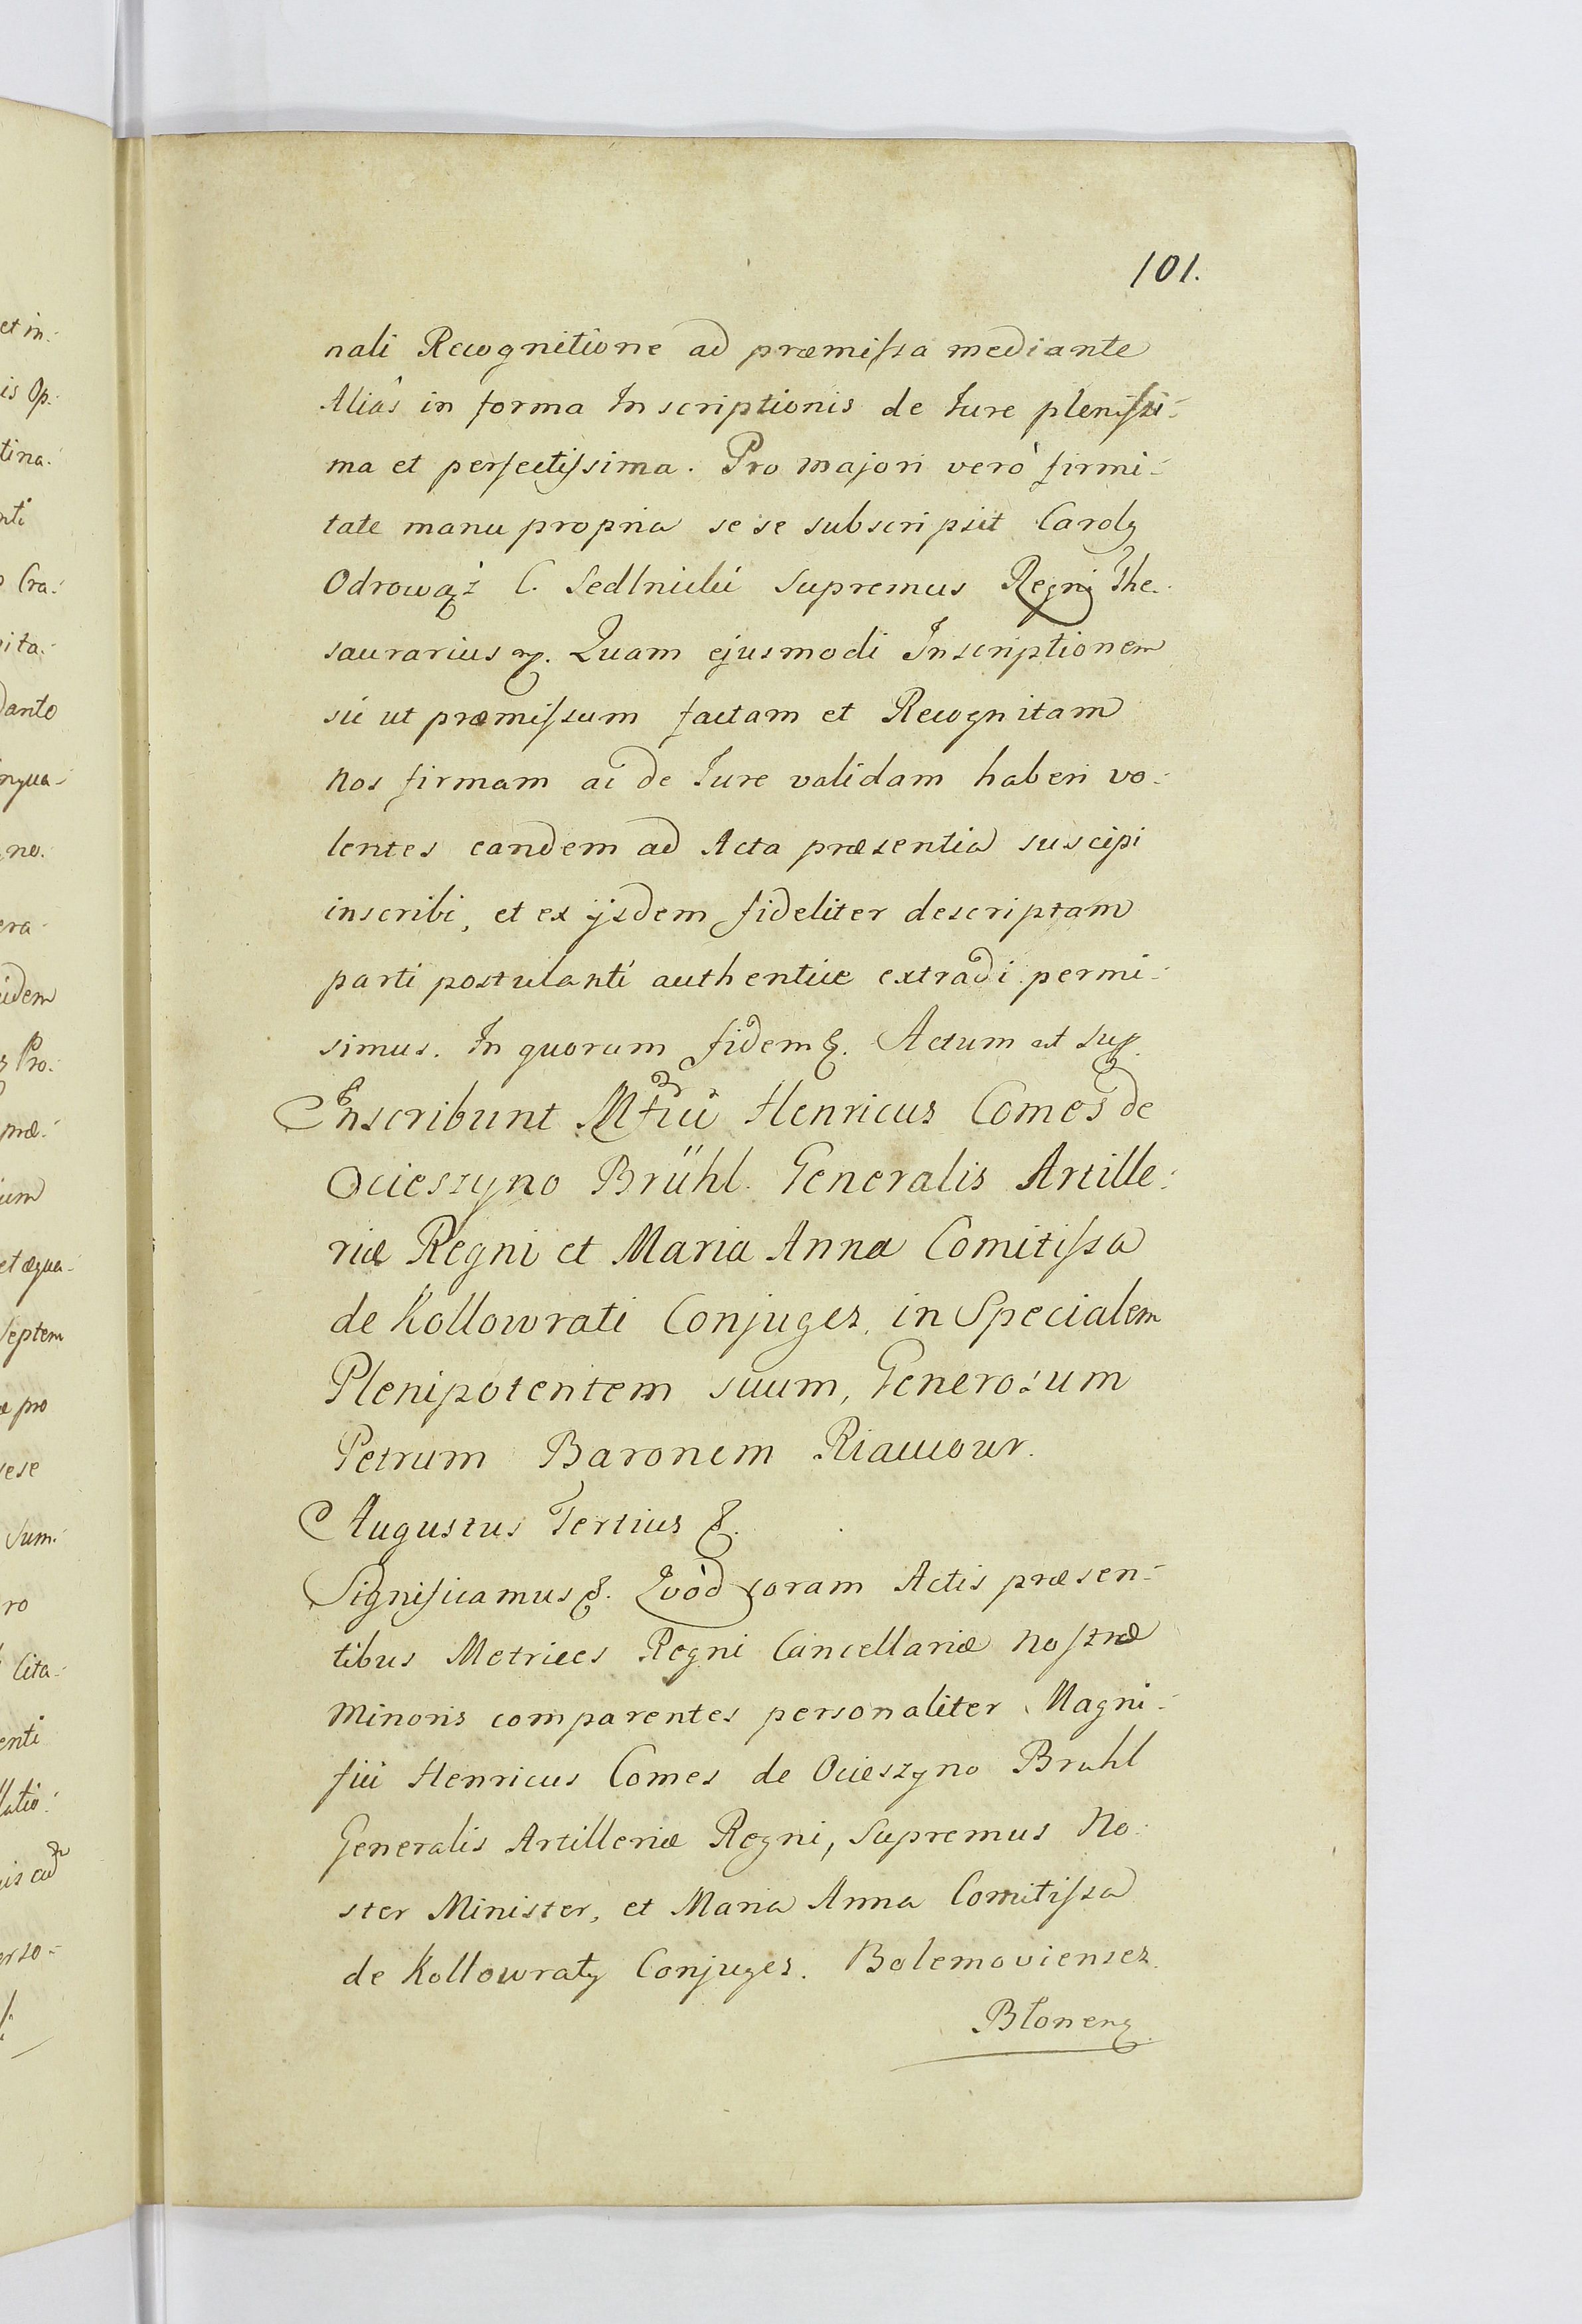 101.
nali Recognitione ad præmissa mediante
Aliàs in forma Inscriptionis de Iure plenissi-
ma et perfectissima. Pro majori verò firmi-
tate manu propria se se subscripsit Carolg
Odrowąż C. Sedlnicki Supremus Regni The-
saurarius mp. Quam ejusmodi Inscriptionem
sic ut præmissum factam et Recognitam
Nos firmam ac de Iure validam haberi vo-
lentes eandem ad Acta præsentia suscipi
inscribi, et ex ijsdem fideliter descriptam
parti postulanti authentice extradi permi-
simus. In quorum fidem &. Actum ut sup.
Inscribunt Mfici Henricus Comes de
Ocieszyno Brühl. Generalis Artille-
riæ Regni et Maria Anna Comitissa
de Kollowrati Conjuges, in Specialem
Plenipotentem suum, Generosum
Petrum Baronem Riaucour.
Augustus Tertius &.
Significamus &. Quòd coram Actis præsen-
tibus Metrices Regni Cancellariæ Nostræ
Minoris comparentes personaliter Magni-
fici Henricus Comes de Ocieszyno Bruhl
Generalis Artilleriæ Regni, Supremus No-
ster Minister, et Maria Anna Comitissa
de Kollowraty Conjuges. Bolemovienses.
Błoneng.
et in-
is Op-
tina-
nti
Cra-
pita-
danto
ngua-
no-
era-
idem
Pro-
præ-
um
et æqua-
Septem
æ pro
sese
Sum-
ro
Cita-
enti
latio-
erso-